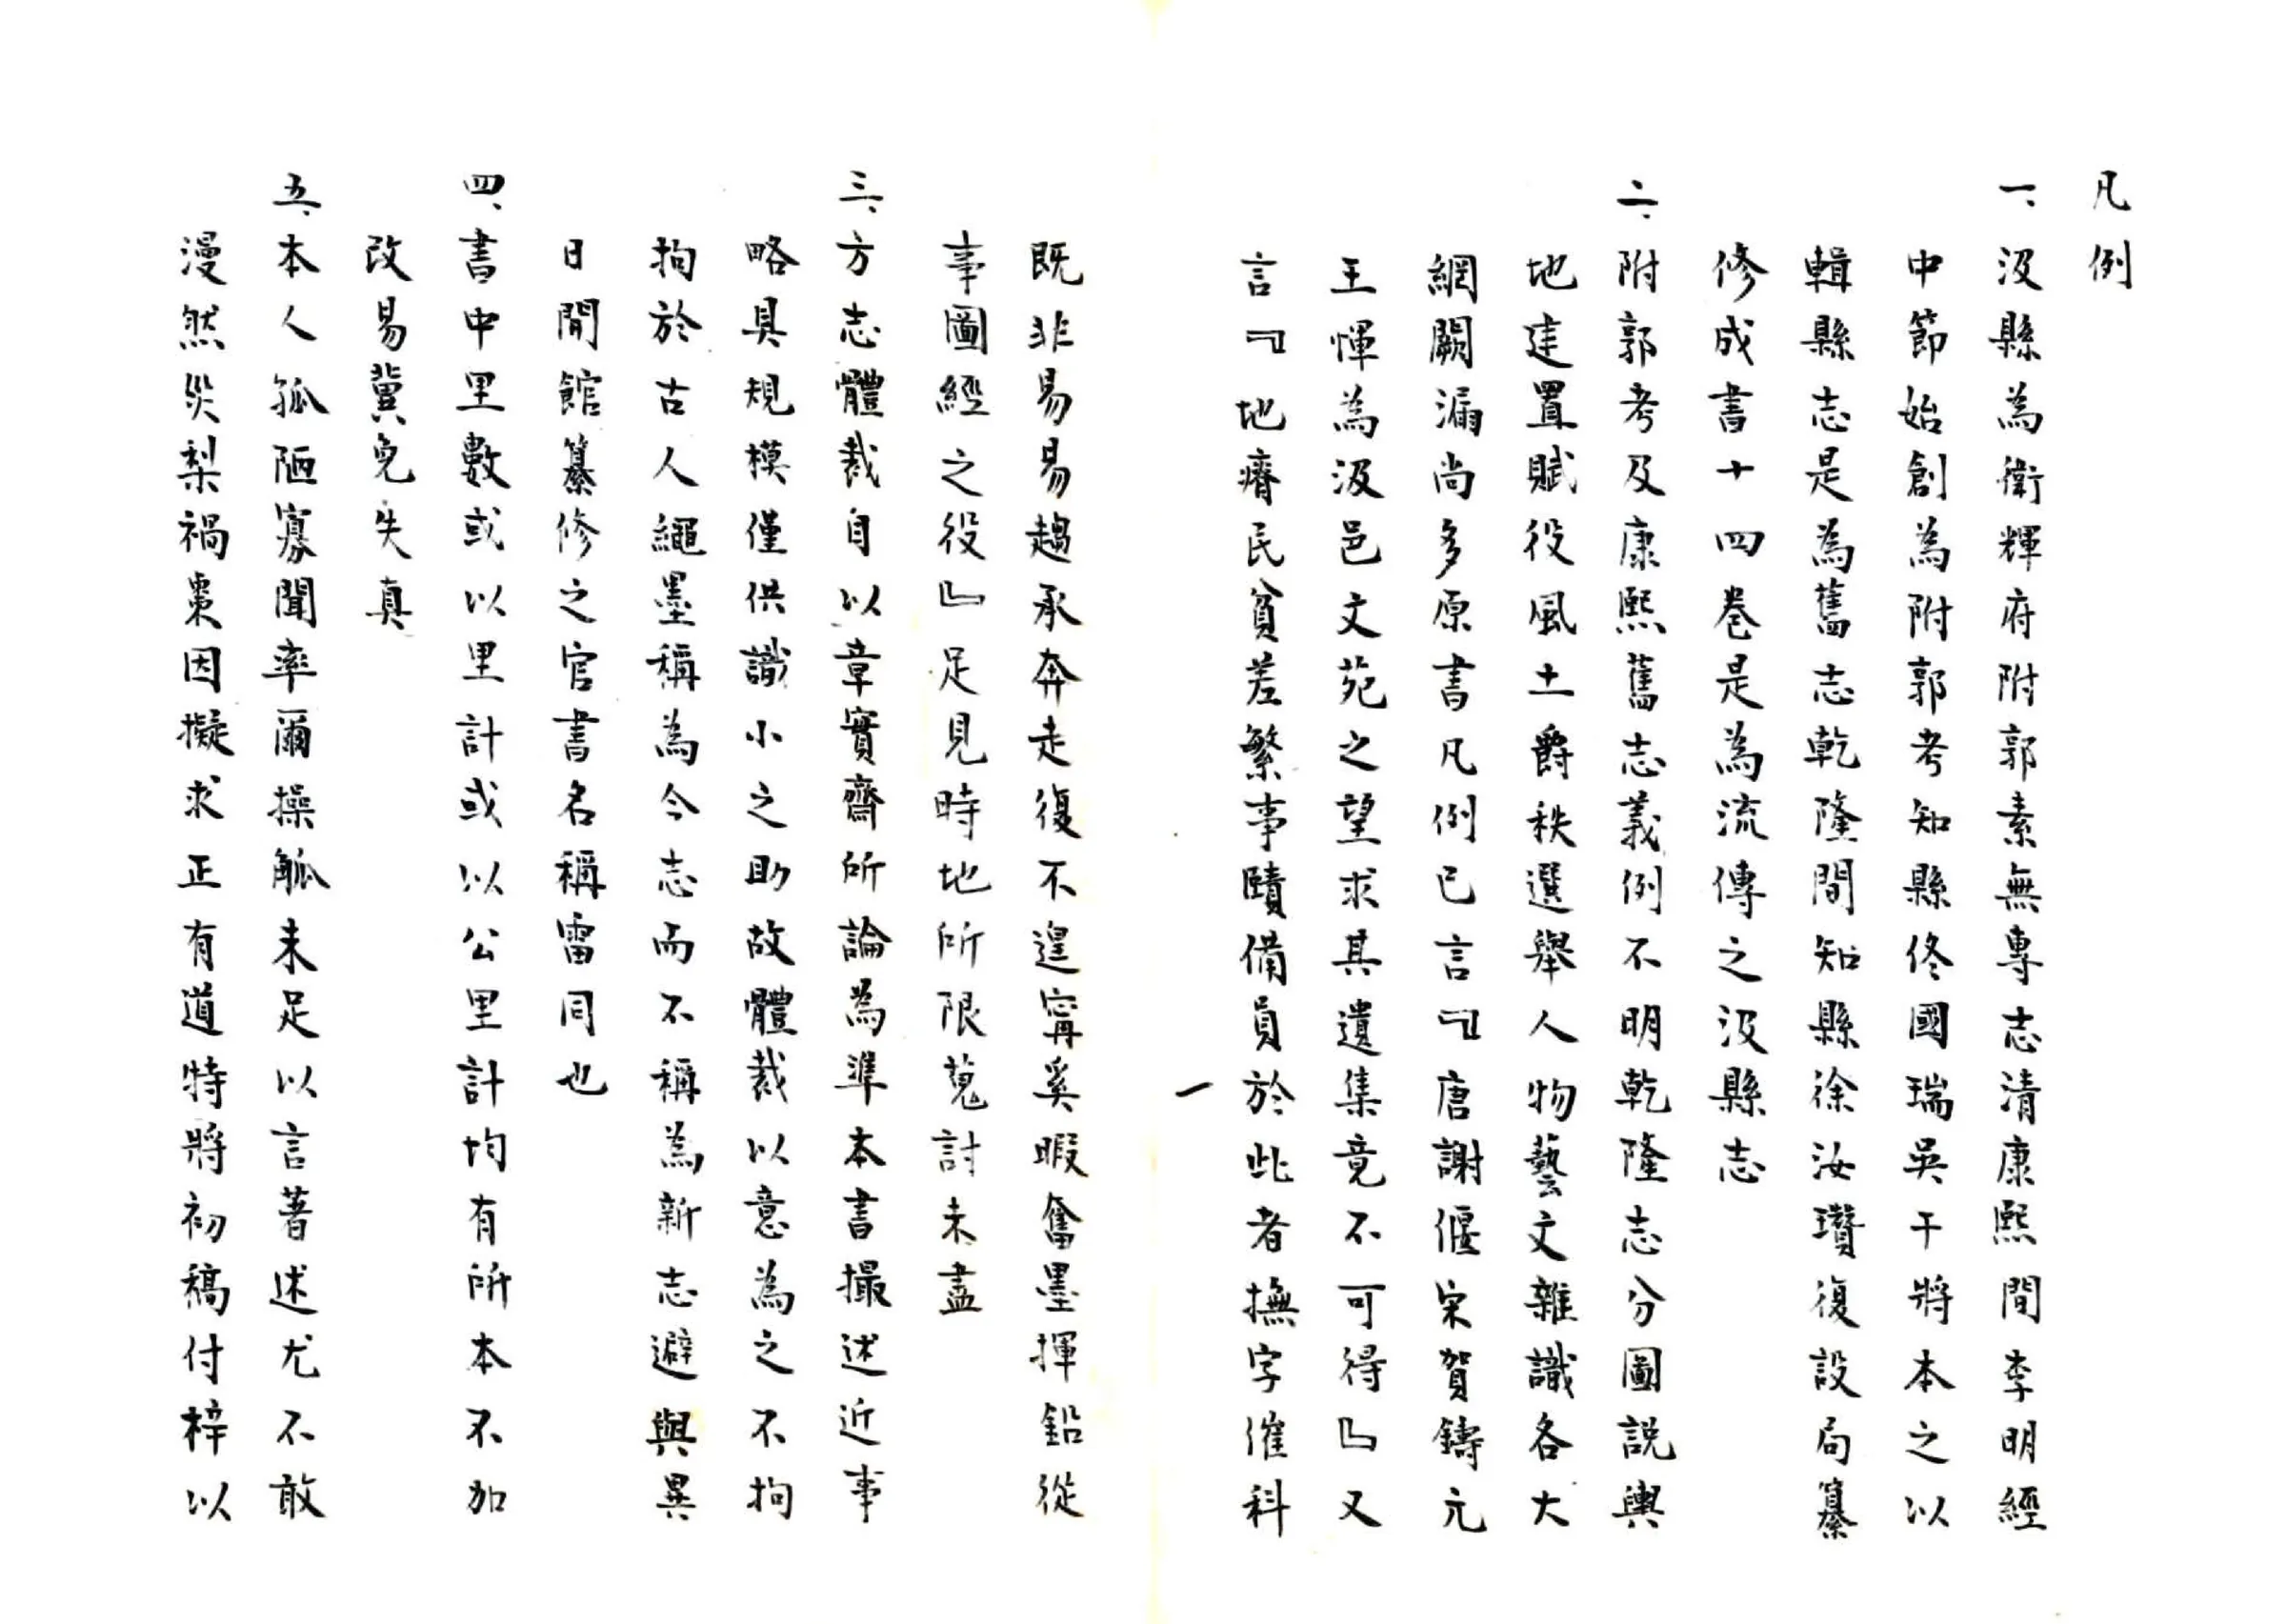 凡例
一、汲縣為衛輝府附郭素無專志清康熙間李明經
中節始創為附郭考知縣佟國瑞吳干將本之以
輯縣志是為舊志乾隆間知縣徐汝瓚復設局纂
修成書十四卷是為流傳之汲縣志
二、附郭考及康熙舊志義例不明乾隆志分圖説輿
地建置賦役風土爵秩選舉人物藝文雜識各大
網闕漏尚多原書凡例已言『唐謝偃宋賀鑄元
王惲為汲邑文苑之望求其遺集竟不可得』又
言『地瘠民貧差繁事賾備員於此者撫字催科
一
既非易易趨承奔走復不遑寧奚暇奮墨揮鉛從
事圖經之役』足見時地所限蒐討未盡
三、方志體裁自以章實齋所論為準本書撮述近事
略具規模僅供識小之助故體裁以意為之不拘
拘於古人繩墨稱為今志而不稱為新志避與異
日開館纂修之官書名稱雷同也
四、書中里數或以里計或以公里計均有所本不加
改易冀免失真
五、本人孤陋寡聞率爾操觚未足以言著述尤不敢
漫然災梨禍棗因擬求正有道特將初稿付梓以